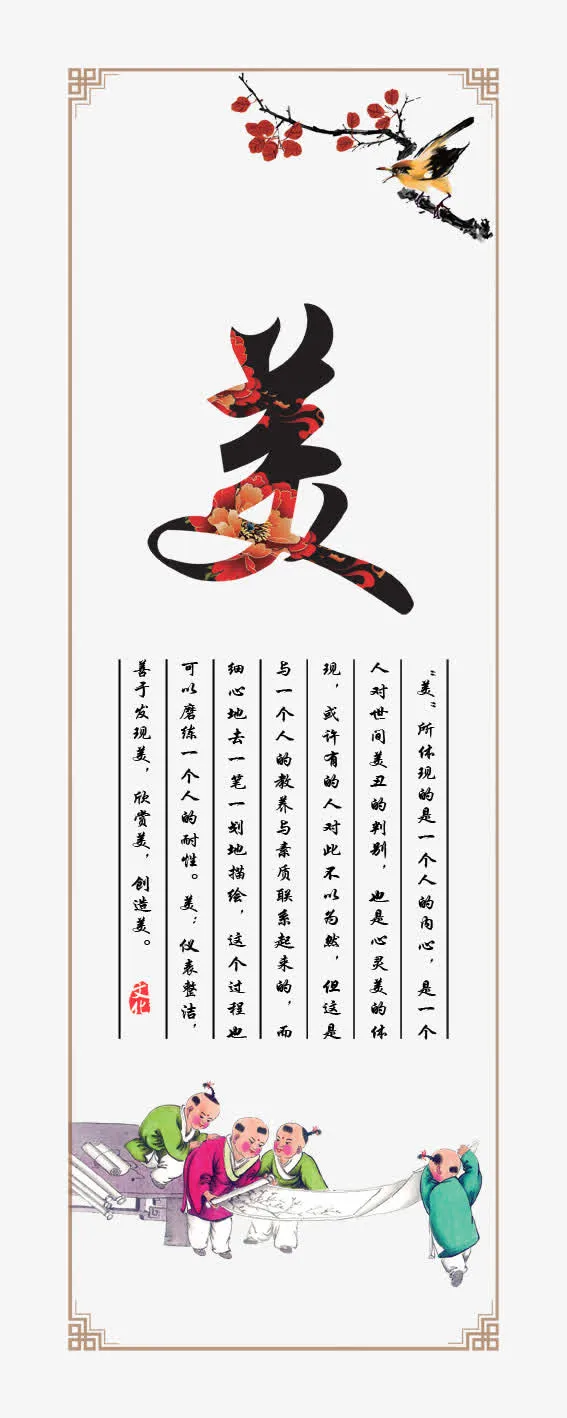 美
“美”所体现的是一个人的内心，是一个
人对世间美丑的判别，也是心灵美的体
现，或许有的人对此不以为然，但这是
与一个人的教养与素质联系起来的，而
细心地去一笔一划地描绘，这个过程也
可以磨练一个人的耐性。美：仪表整洁，
善于发现美，欣赏美，创造美。
文化